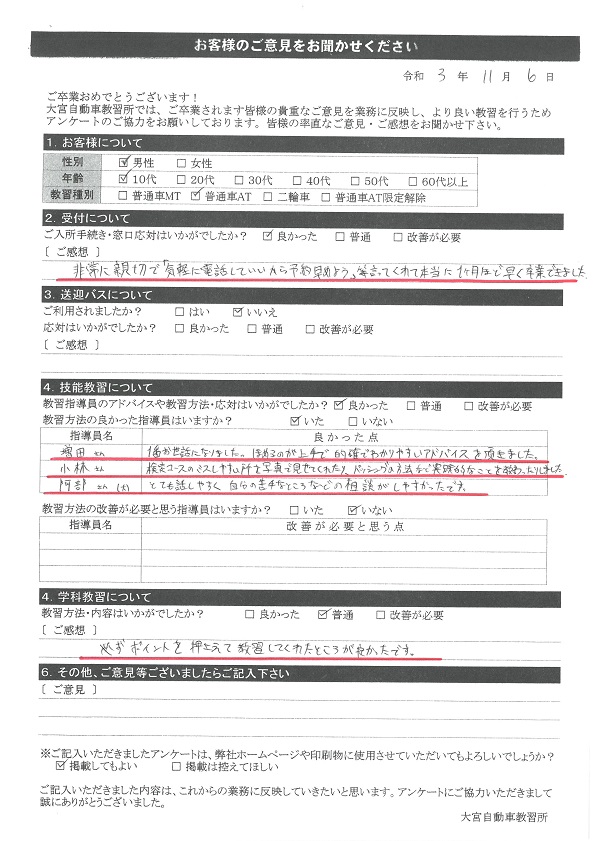 お客様のご意見をお聞かせください
令和 3 年 11 月 6 日
ご卒業おめでとうございます！
大宮自動車教習所では、ご卒業されます皆様の貴重なご意見を業務に反映し、より良い教習を行うため
アンケートのご協力をお願いしております。皆様の率直なご意見・ご感想をお聞かせ下さい。
1. お客様について
性別 ☑男性 □女性
年齢 ☑10代 □20代 □30代 □40代 □50代 □60代以上
教習種別 □普通車MT ☑普通車AT □二輪車 □普通車AT限定解除
2. 受付について
ご入所手続き・窓口応対はいかがでしたか？ ☑良かった □普通 □改善が必要
［ ご感想 ］
非常に親切で「気軽に電話していいから予約早めよう」等言ってくれて本当に1ヶ月ほどで早く卒業できました
3. 送迎バスについて
ご利用されましたか？ □はい ☑いいえ
応対はいかがでしたか？ □良かった □普通 □改善が必要
［ ご感想 ］
4. 技能教習について
教習指導員のアドバイスや教習方法・応対はいかがでしたか？ ☑良かった □普通 □改善が必要
教習方法の良かった指導員はいますか？ ☑いた □いない
指導員名 良かった点
増田さん お世話になりました。ほめるのが上手で的確でわかりやすいアドバイスを頂きました。
小林さん 検定コースのミスしやすい所を写真で見せてくれたり、バッシングの方法など実践的なことを教わったりしました
阿部さん(大) とても話しやすく自分の苦手なところなどの相談がしやすかったです。
教習方法の改善が必要と思う指導員はいますか？ □いた ☑いない
指導員名 改善が必要と思う点
4. 学科教習について
教習方法・内容はいかがでしたか？ □良かった ☑普通 □改善が必要
［ ご感想 ］
必ずポイントを押さえて教習してくれたところが良かったです。
6. その他、ご意見等ございましたらご記入下さい
［ ご意見 ］
※ご記入いただきましたアンケートは、弊社ホームページや印刷物に使用させていただいてもよろしいでしょうか？
☑掲載してもよい □掲載は控えてほしい
ご記入いただきました内容は、これからの業務に反映していきたいと思います。アンケートにご協力いただきまして
誠にありがとうございました。
大宮自動車教習所